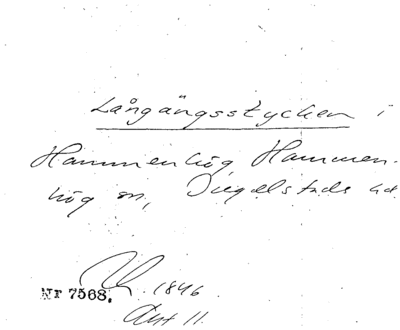 Långängsstycken i
Hammenhög, Hammen-
hög sn, Ingelstads hd
Nr 7568. 1846
Akt 11.